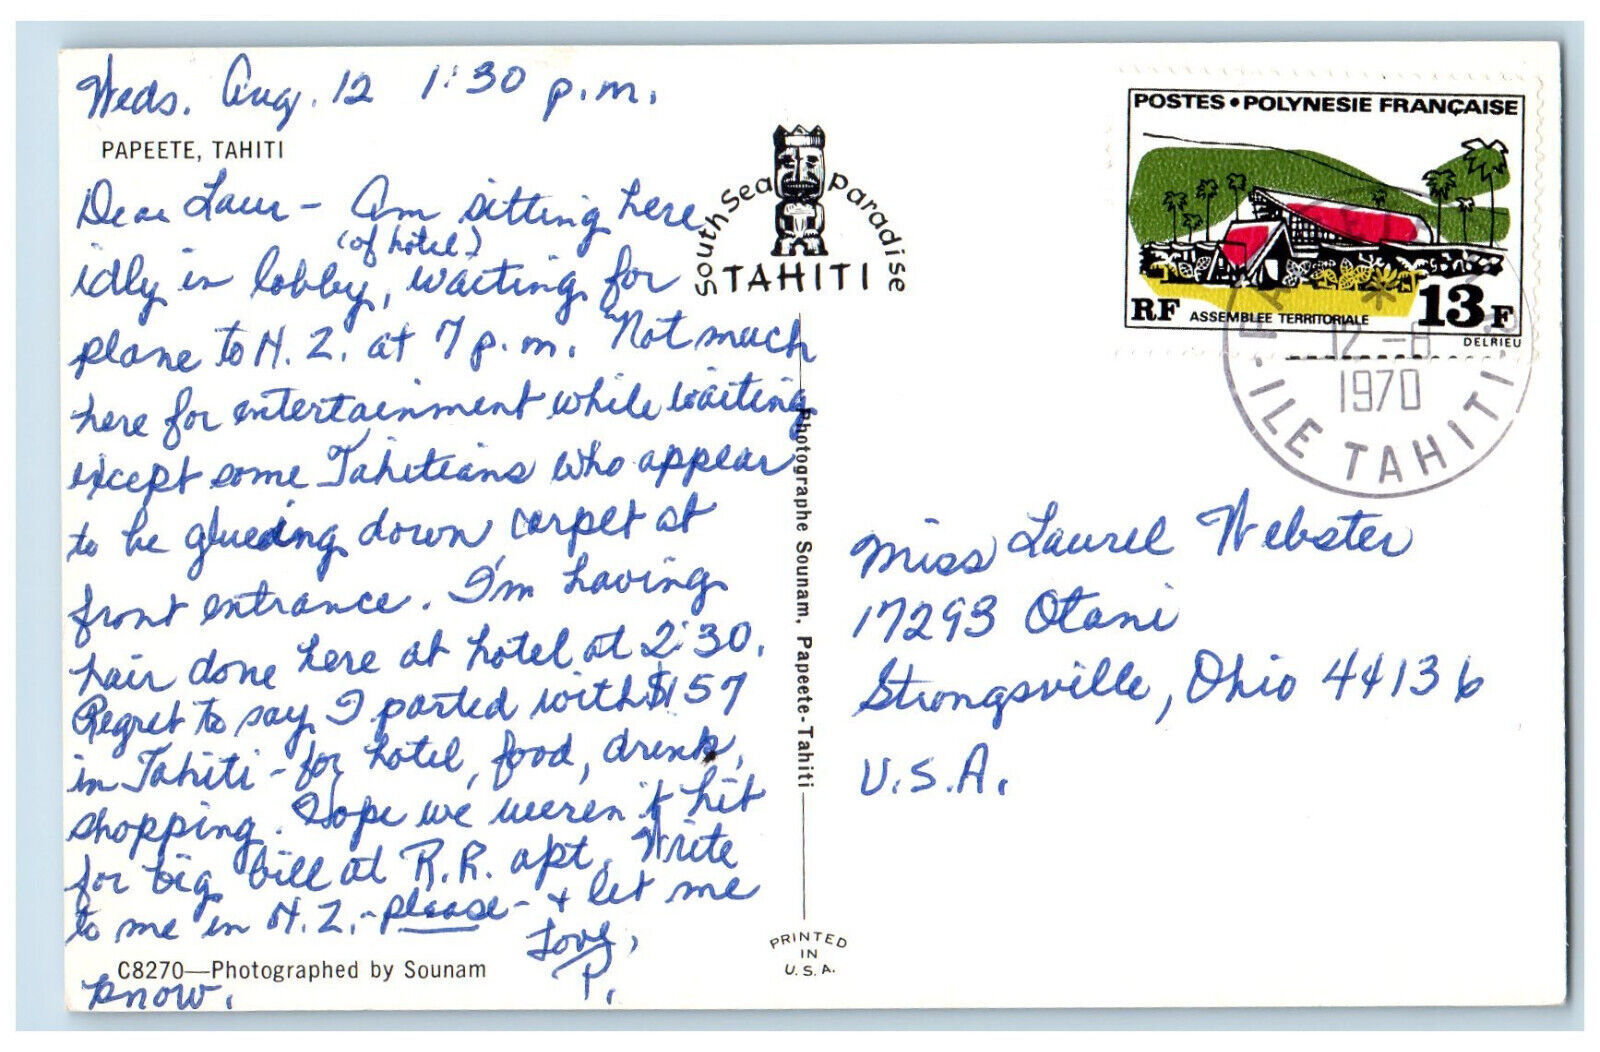 Weds. Aug. 12 1:30 p.m.
PAPEETE, TAHITI
Dear Laur - Am sitting here
idly in lobby, (of hotel) waiting for
plane to N.Z. at 7 p.m. Not much
here for entertainment while waiting
except some Tahitians who appear
to be glueing down carpet at
front entrance. I'm having
hair done here at hotel at 2:30.
Regret to say I parted with $157
in Tahiti - for hotel, food, drink,
shopping. Hope we weren't hit
for big bill at R.R. apt. Write
to me in N.Z. - please - + let me
know.
Love,
P.
C8270—Photographed by Sounam
South Sea Paradise
TAHITI
Photographe Sounam, Papeete-Tahiti
PRINTED
IN
U.S.A.
POSTES • POLYNESIE FRANÇAISE
RF ASSEMBLEE TERRITORIALE 13F
DELRIEU
12 -8
1970
ILE TAHITI
Miss Laurel Webster
17293 Otani
Strongsville, Ohio 44136
U.S.A.